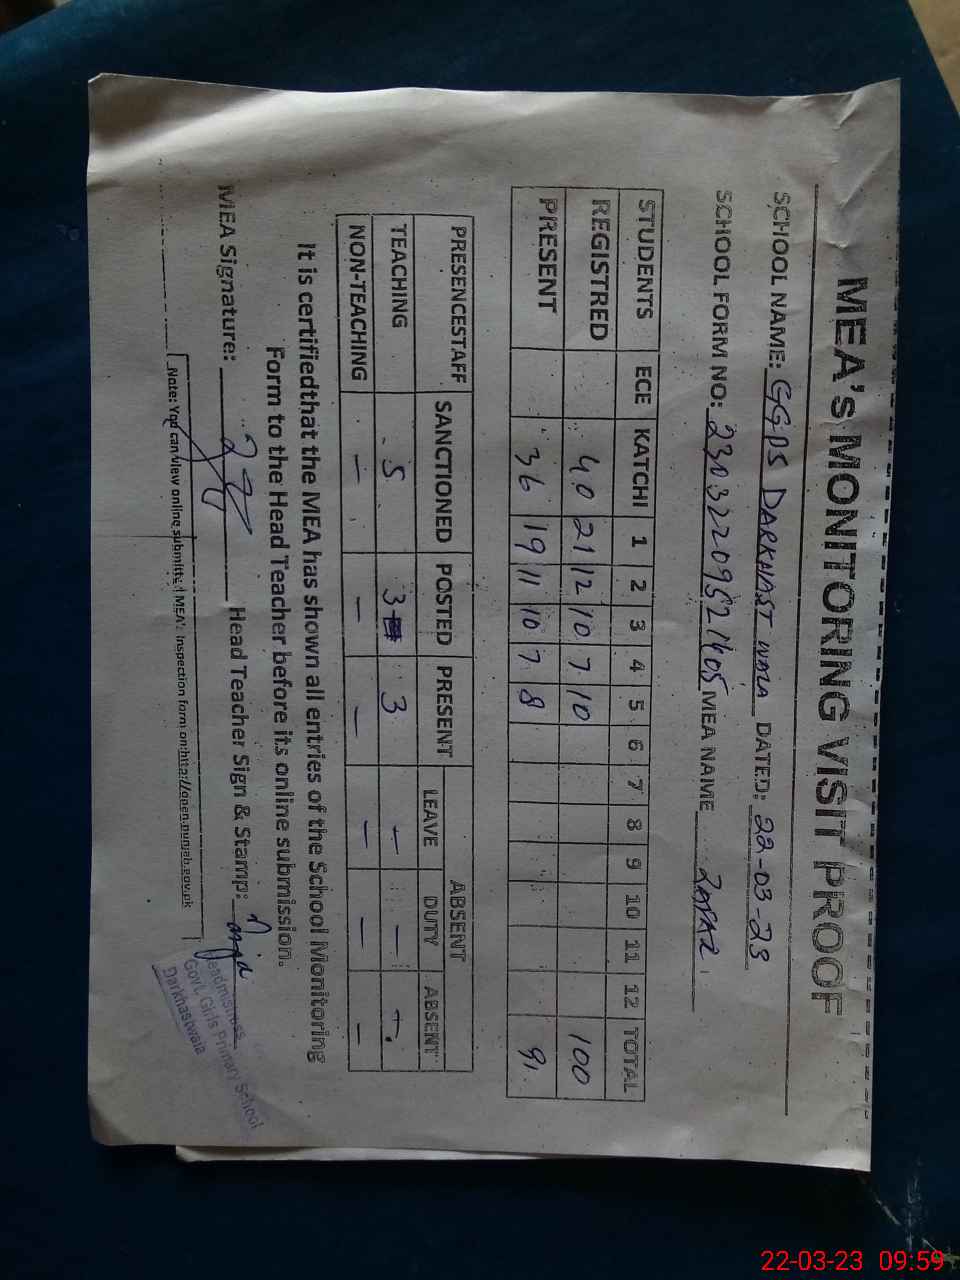 MEA's MONITORING VISIT PROOF
SCHOOL NAME: GGPS DARKHAST WALA DATED: 22-03-23
SCHOOL FORM NO: 23032209521405 MEA NAME ZAFAR
STUDENTS ECE KATCHI 1 2 3 4 5 6 7 8 9 10 11 12 TOTAL
REGISTRED 40 21 12 10 7 10 100
PRESENT 36 19 11 10 7 8 91
PRESENCESTAFF SANCTIONED POSTED PRESENT ABSENT
LEAVE DUTY ABSENT
TEACHING 5 3 3 – – –
NON-TEACHING – – – – – –
It is certifiedthat the MEA has shown all entries of the School Monitoring
Form to the Head Teacher before its online submission.
MEA Signature: Head Teacher Sign & Stamp:
Headmistress
Govt. Girls Primary School
Darkhastwala
Note: You can view online submitted MEA's Inspection form on:http://open.punjab.gov.pk
22-03-23 09:59